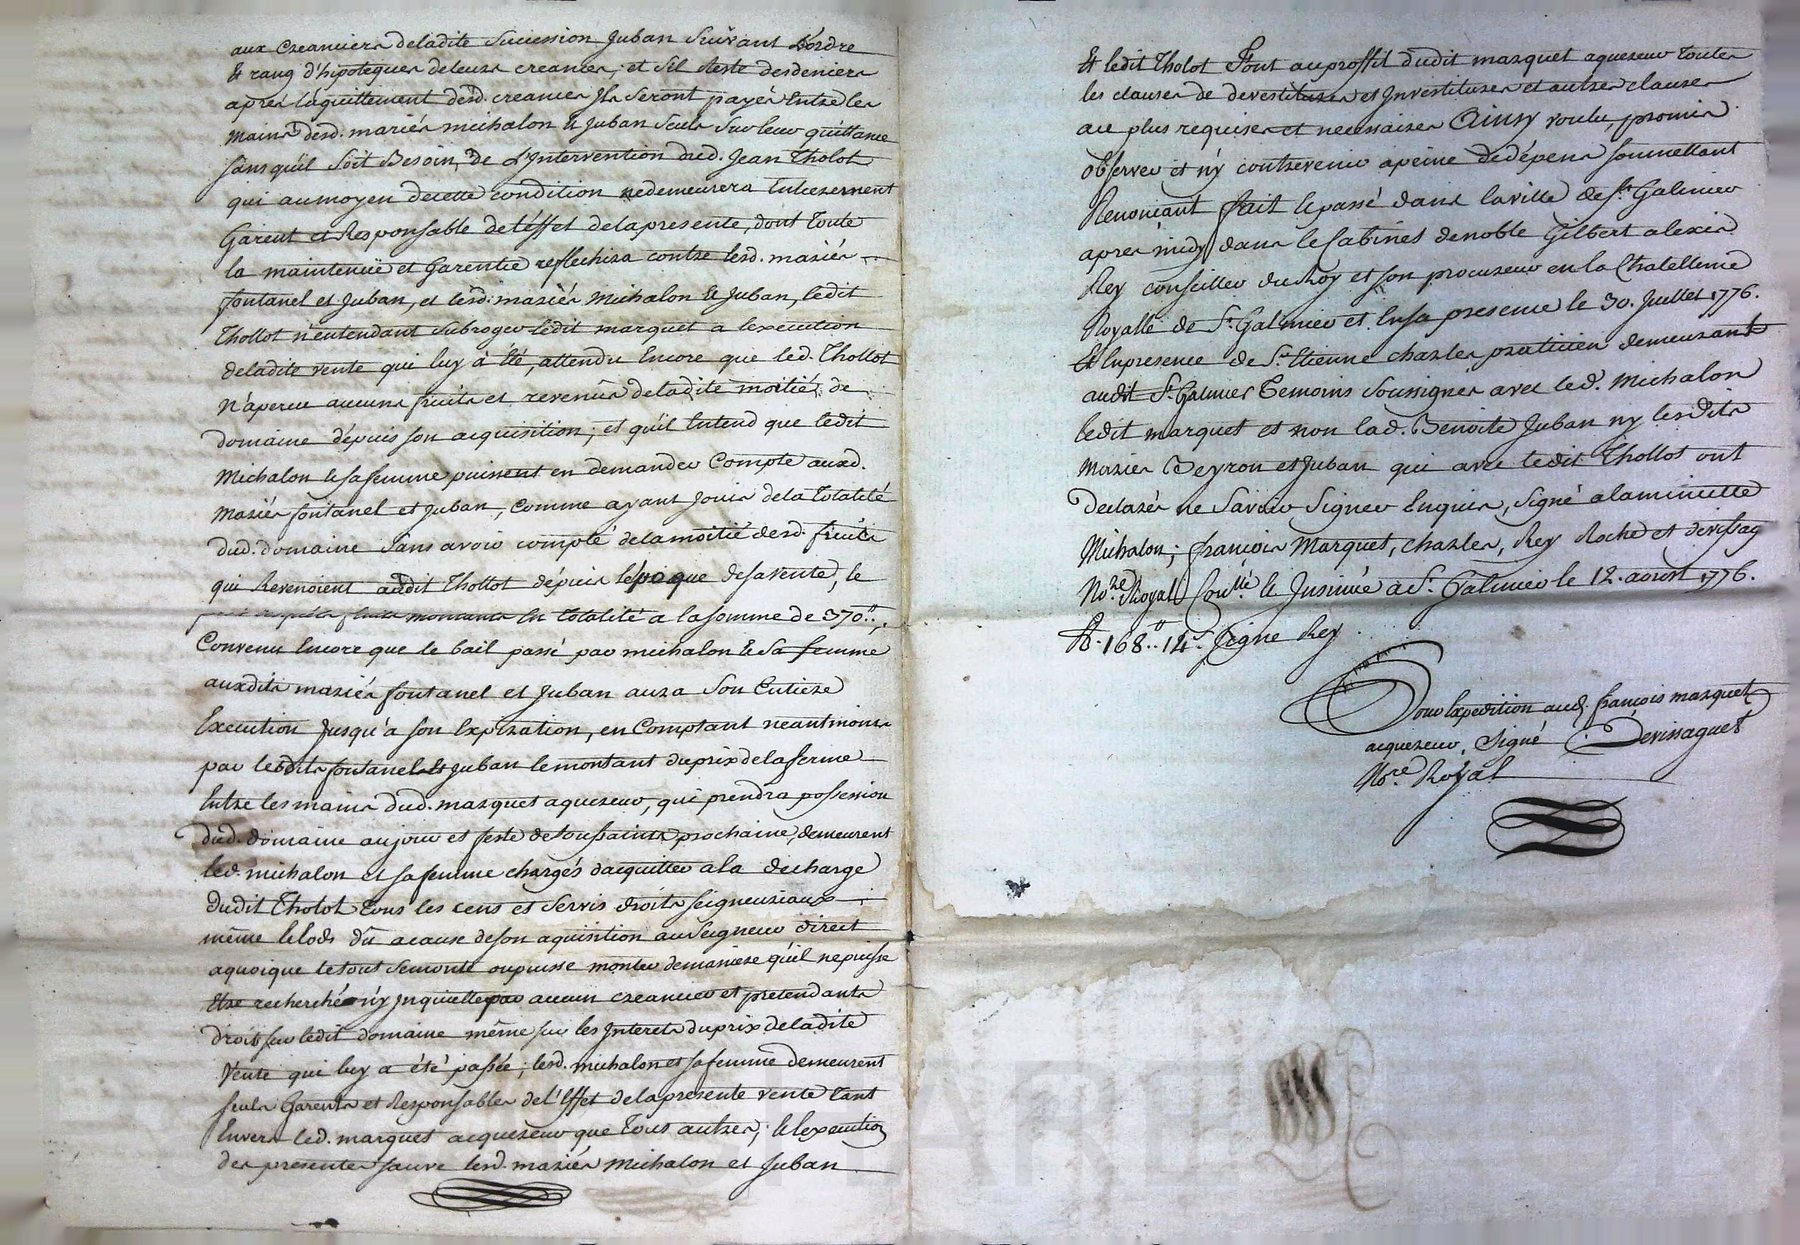 aux Creanciers deladite Succession Juban Suivant L'ordre
Et rang d'hipoteques deleurs creances; et Sil Reste desdeniers
apres l'aquittement desd. creances Ils Seront payés Entre les
mains desd. mariés michalon & Juban Seuls Sur leur quittance
sans qu'il Soit Besoin, de L'Intervention dud. Jean Tholot
qui aumoyen decette condition nedemeurera Entierement
Garent et Responsable del'éffet delapresente, dont toute
la maintenüe et Garentie reflechira contre lesd. mariés
fontanel et Juban, et lesd. mariés Michalon & Juban, ledit
Thollot n'entendant Subroger ledit marquet a lexecution
deladite vente qui luy à Eté, attendu Encore que led. Thollot
N'aperçu aucuns fruits et revenus deladite moitié de
domaine dépuis son acquisition; et qu'il Entend que ledit
Michalon & sa femme puissent en demander Compte auxd.
Mariés fontanel et Juban, Comme ayant Jouis dela totalité
dud. domaine Sans avoir compté delamoitié desd. fruits
qui Revenoient audit Thollot dépuis lépoque desavente, le
montants En totalité a lasomme de 370.₶.
Convenu Encore que le bail passé par michalon & Sa femme
auxdits mariés fontanel et Juban aura Son Entiere
Execution Jusqu'a son Expiration, en Comptant neantmoins
par lesdits fontanel & Juban lemontant duprix delaferme
Entre les mains dud. marquet aquereur, qui prendra possession
dud. domaine aujour et feste detoussaints prochaine, demeurent
led. michalon et sa femme chargés dacquitter ala decharge
dudit Tholot tous les cens et Servis droits Seigneuriaux
même lelods dû acause deson aquisition au Seigneur direct
aquoique letout Semonte oupuisse monter demaniere qu'il nepuisse
Etre recherché n'y Inquietté par aucun creancier et pretendants
droits sur ledit domaine même sur les Interets duprix deladite
Vente qui luy a été passée; lesd. michalon et sa femme demeurent
seuls Garents et Responsables de l'Effet delapresente vente tant
Envers led. marquet acquereur que tous autres; & lexecution
des presentes sauve lesd. mariés Michalon et Juban
Et ledit Tholot Font auproffit dudit marquet aquereur toutes
les clauses de devestitures et Investitures et autres clauses
au plus requises et necessaires Ainsy voulu, promis
observer et n'y contrevenir apeine dedépens soumettant
Renonçant fait & passé dans laville deSt. Galmier
apres midy dans le Cabinet denoble Gilbert alexis
Rey conseiller du Roy et son procureur en la Chatellenie
Royalle de St. Galmier et Ensa presence le 30. Juillet 1776.
Et Enpresence de Sr. Etienne charles praticien demeurant
audit St. Galmier Temoins Soussignés avec led. Michalon
ledit marquet et non lad. Benoite Juban ny lesdits
Mariés Beyron et Juban qui avec ledit Thollot ont
Declarés ne Savoir Signer Enquis, Signé alaminutte
Michalon; françois Marquet, charles, Rey Roche et devissag
Nore. Royal Conllé & Insinué à St. Galmier le 12. aoust 1776.
R. 168.₶ 14.s Signe Rey.
Pour Expedition aud. françois marquet
acquereur. Signé Devissaguet
Nore. Royal